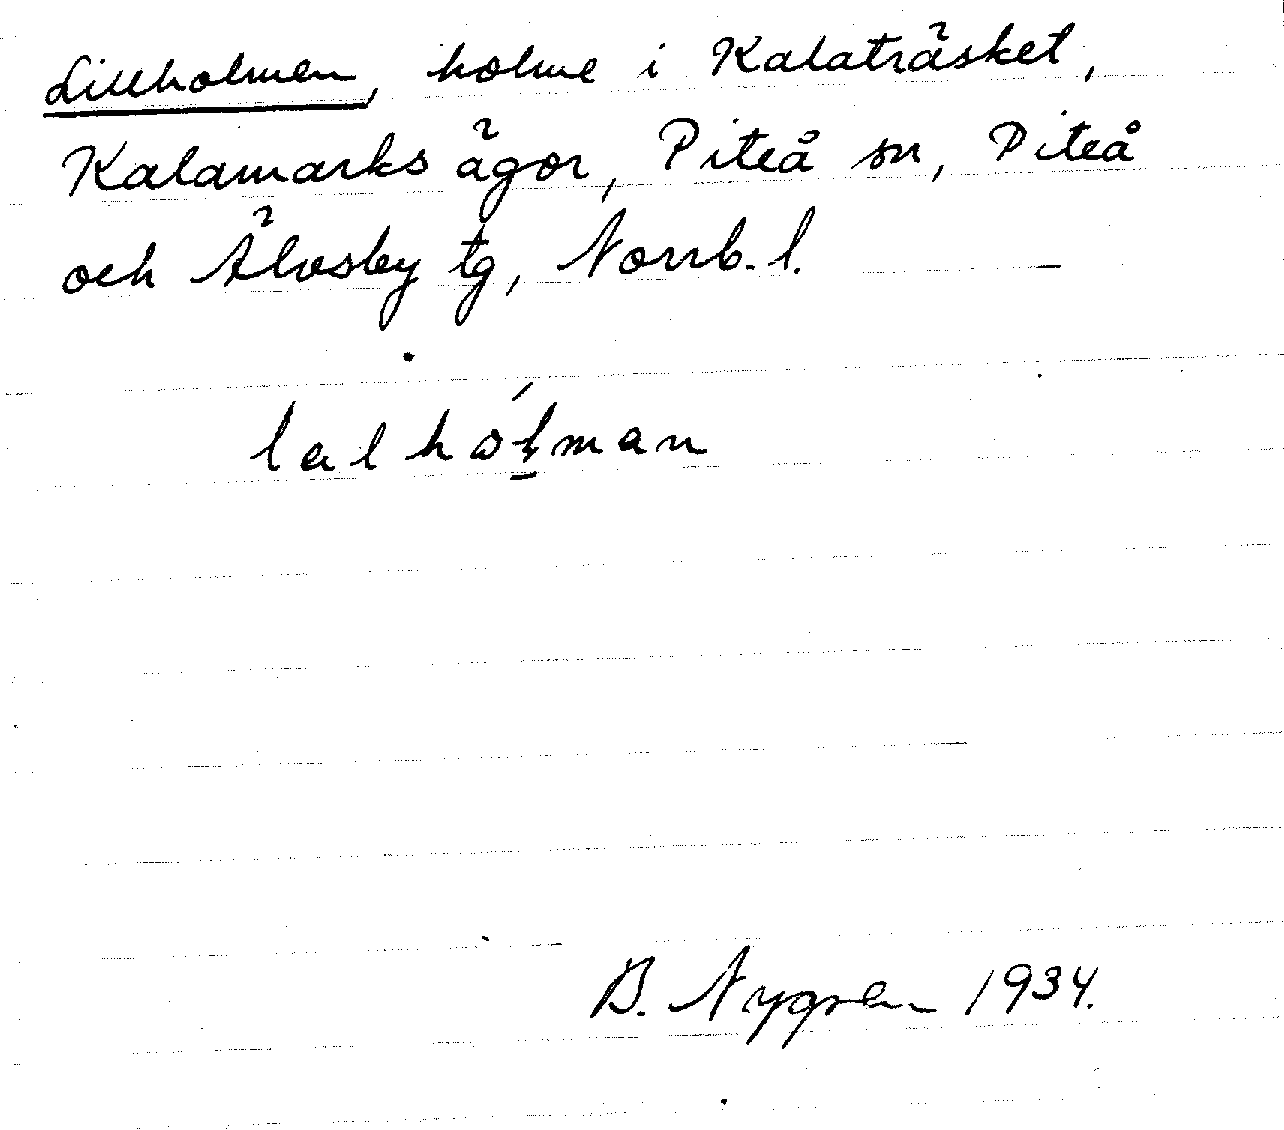 Lillholmen, holme i Kalaträsket,
Kalamarks ägor, Piteå sn, Piteå
och Älvsby tg, Norrb. l.
lalhólman
B. Nygren 1934.